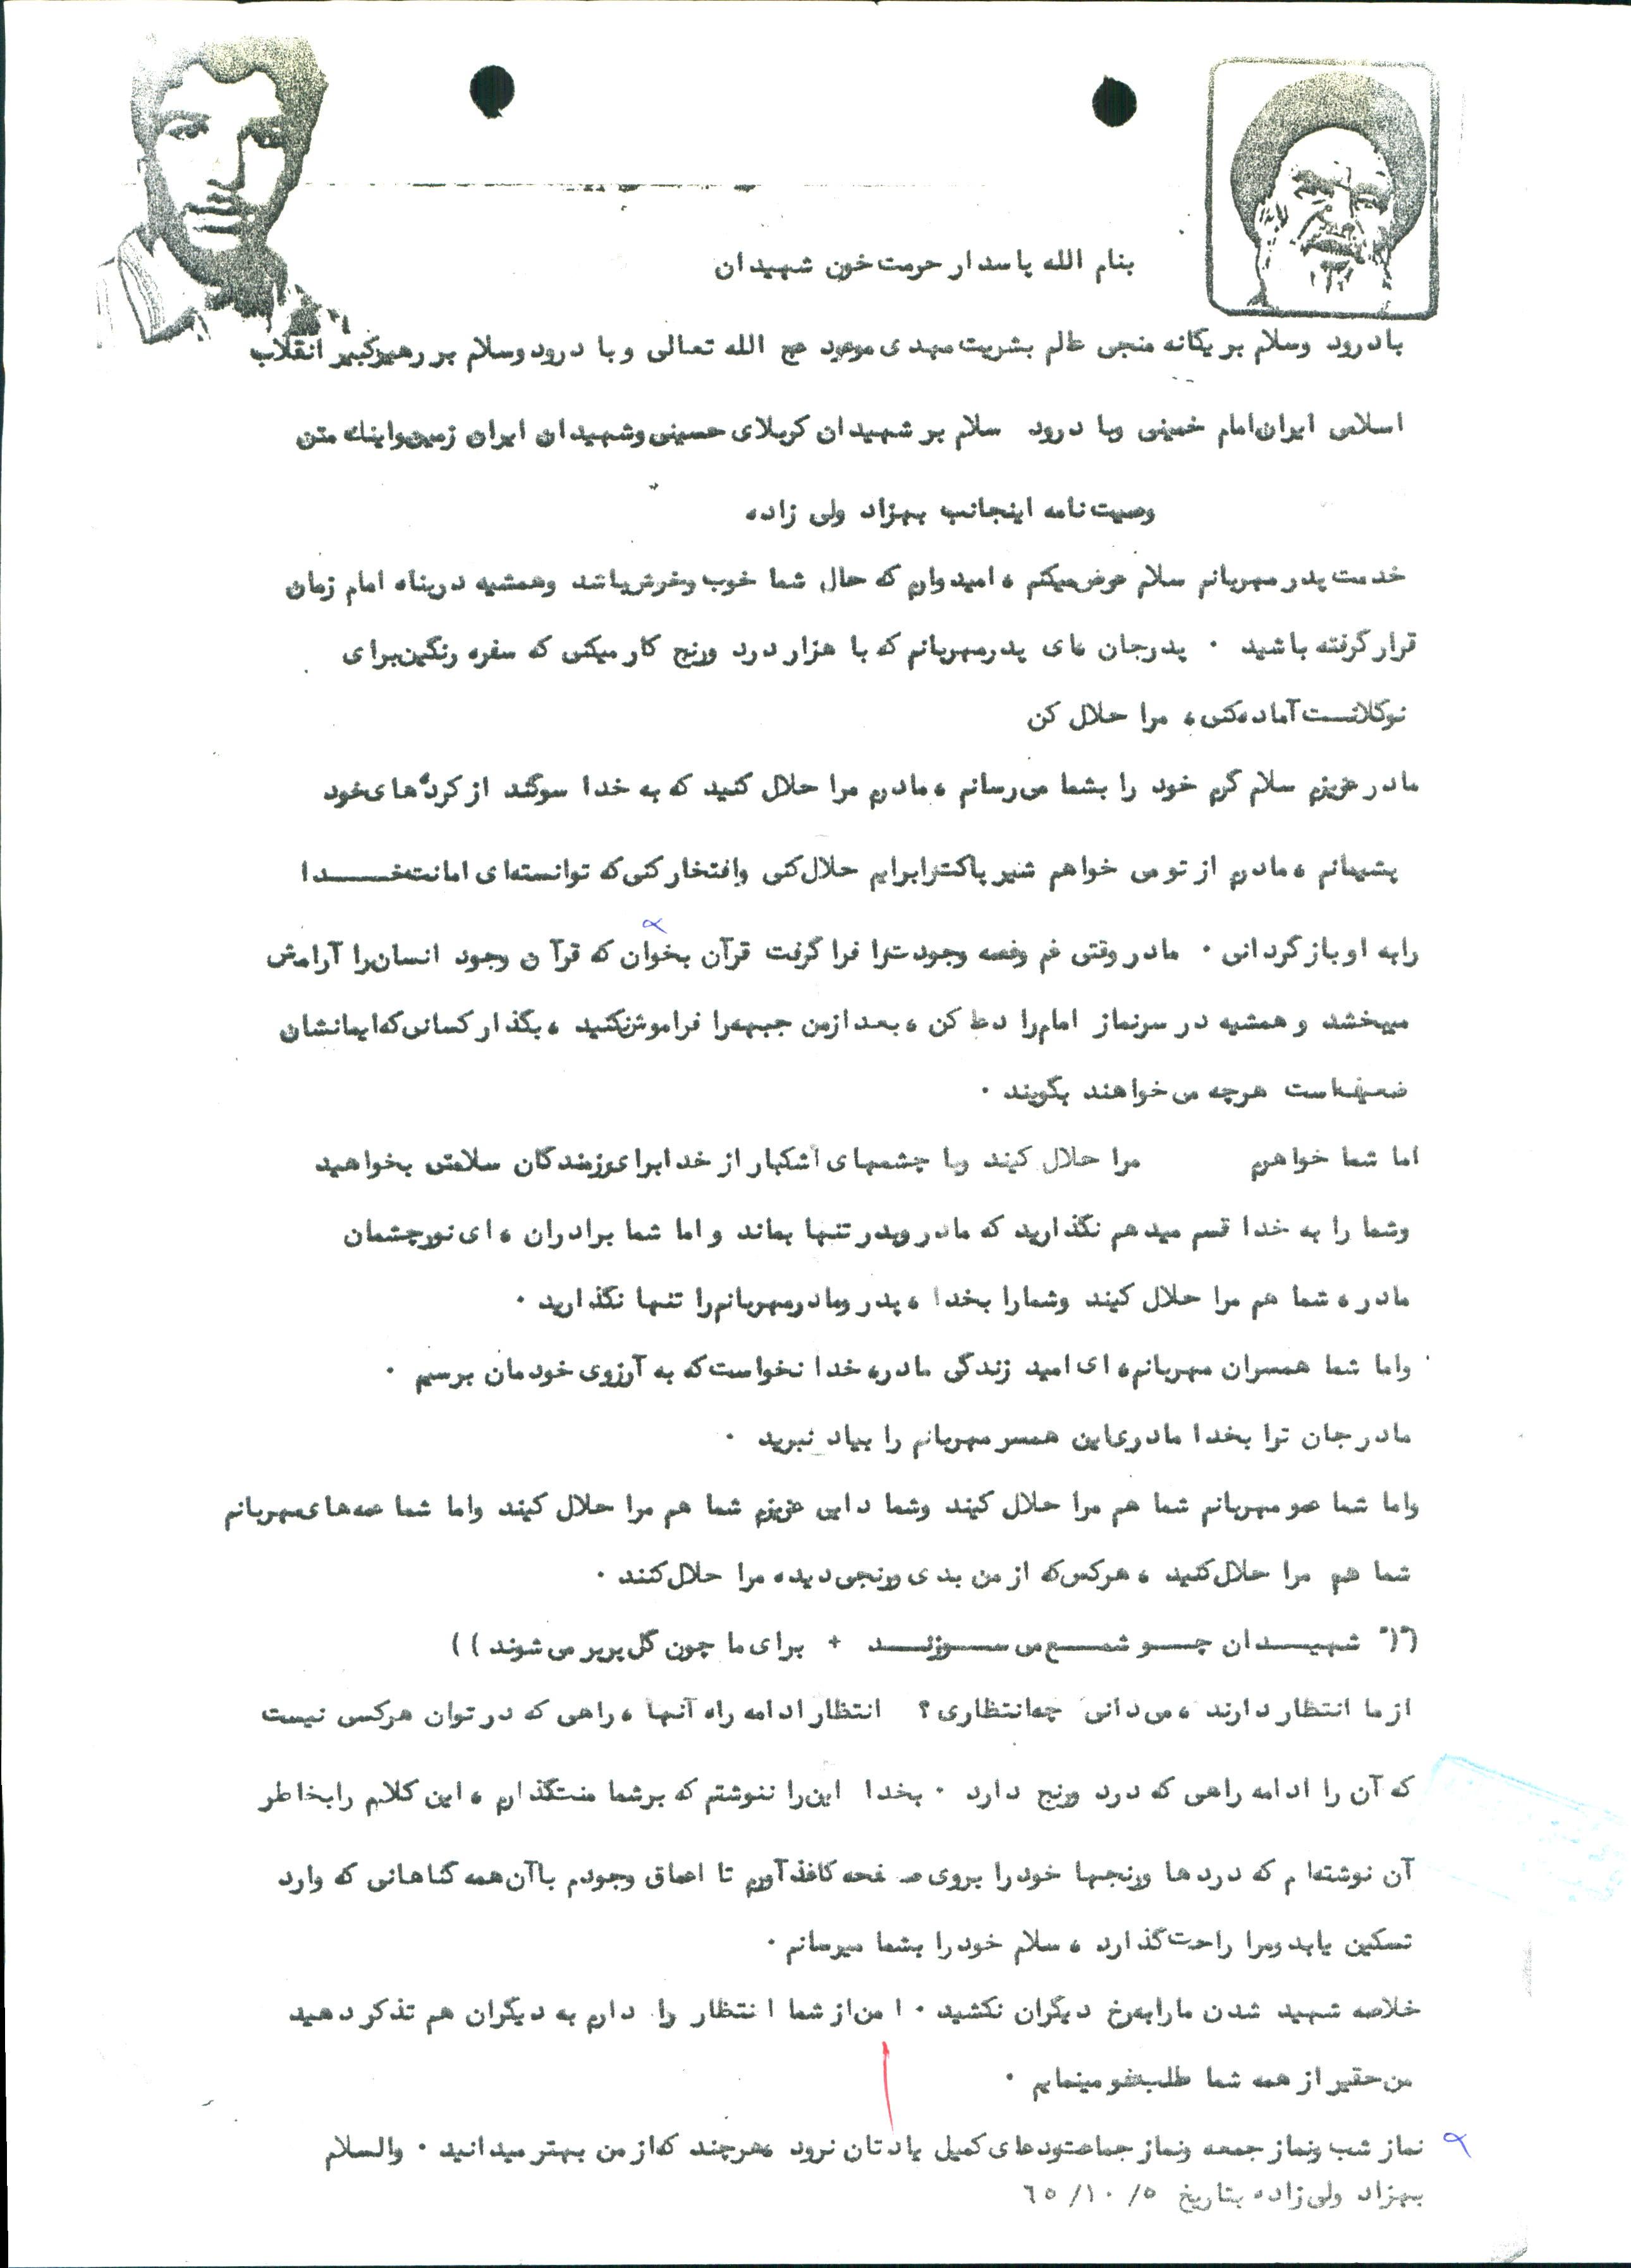 بنام الله پاسدار حرمت خون شهیدان
بادرود وسلام بر یگانه منجی عالم بشریت مهدی موعود عج الله تعالی و با درود وسلام بر رهبرکبیر انقلاب
اسلامی ایران امام خمینی وبا درود سلام بر شهیدان کربلای حسینی وشهیدان ایران زمین واینک متن
وصیت نامه اینجانب بهزاد ولی زاده
خدمت پدر مهربانم سلام عرض میکنم ، امیدوارم که حال شما خوب وخوش باشد وهمشیه درپناه امام زمان
قرار گرفته باشید . پدرجان های پدرمهربانم که با هزار درد ورنج کار میکنی که سفره رنگین برای
نوگلانست آماده کنی ، مرا حلال کن
مادر عزیزم سلام گرم خود را بشما می رسانم ، مادرم مرا حلال کنید که به خدا سوگند از کرده های خود
پشیمانم ، مادرم از تو می خواهم شیر پاکت را برایم حلال کنی وافتخار کنی که توانسته ای امانت خـــدا
رابه او باز گردانی . مادر وقتی غم وغصه وجودت را فرا گرفت قرآن بخوان که قرآن وجود انسان را آرامش
میبخشد و همشیه در سرنماز امام را دعا کن ، بعد ازمن جبهه را فراموش نکنید ، بگذار کسانی که ایمانشان
ضعیف است هرچه می خواهند بگویند .
اما شما خواهرم مرا حلال کیند وبا چشمهای اشکبار از خدا برای رزمندگان سلامتی بخواهید
وشما را به خدا قسم میدهم نگذارید که مادر وپدر تنها بماند و اما شما برادران ، ای نورچشمان
مادر ، شما هم مرا حلال کیند وشمارا بخدا ، پدر ومادرمهربانم را تنها نگذارید .
واما شما همسران مهربانم ، ای امید زندگی مادر، خدا نخواست که به آرزوی خودمان برسیم .
مادر جان ترا بخدا مادری این همسر مهربانم را بیاد نبرید .
واما شما عمو مهربانم شما هم مرا حلال کیند وشما دایی عزیزم شما هم مرا حلال کیند واما شما عمه های مهربانم
شما هم مرا حلال کنید ، هرکس که از من بدی ورنجی دیده مرا حلال کنند .
(( شهیــدان چــو شمــع می ســوزنــد + برای ما چون گل پرپر می شوند ))
از ما انتظار دارند ، می دانی چه انتظاری ؟ انتظار ادامه راه آنها ، راهی که در توان هرکسی نیست
که آن را ادامه راهی که درد ورنج دارد . بخدا این را ننوشتم که برشما منت گذارم ، این کلام رابخاطر
آن نوشته ام که دردها ورنجها خود را بروی صفحه کاغذ آورم تا اعماق وجودم با آن همه گناهانی که وارد
تسکین یابد ومرا راحت گذارد ، سلام خود را بشما میرسانم .
خلاصه شهید شدن مارا به رخ دیگران نکشید . ا من از شما انتظار را دارم به دیگران هم تذکر دهید
من حقیر از همه شما طلب عفو مینمایم .
نماز شب ونماز جمعه ونماز جماعت ودعای کمیل یادتان نرود ، هرچند که از من بهتر میدانید . والسلام
بهزاد ولی زاده بتاریخ ٦٥/١٠/٥